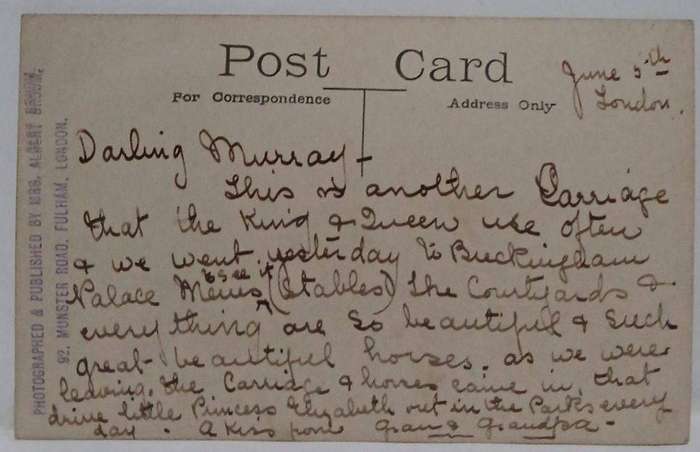 Post Card
For Correspondence
Address Only
June 5th
London.
PHOTOGRAPHED & PUBLISHED BY MRS. ALBERT BROOM,
92, MUNSTER ROAD, FULHAM, LONDON.
Darling Murray -
This is another Carriage
that the King & Queen use often
& we went yesterday to Buckingham
Palace Mews to see it (Stables) The Courtyards &
everything are so beautiful & such
great beautiful horses. as we were
leaving, the Carriage & horses came in, that
drive little Princess Elizabeth out in the Parks every
day. A kiss from Gran & Grandpa -